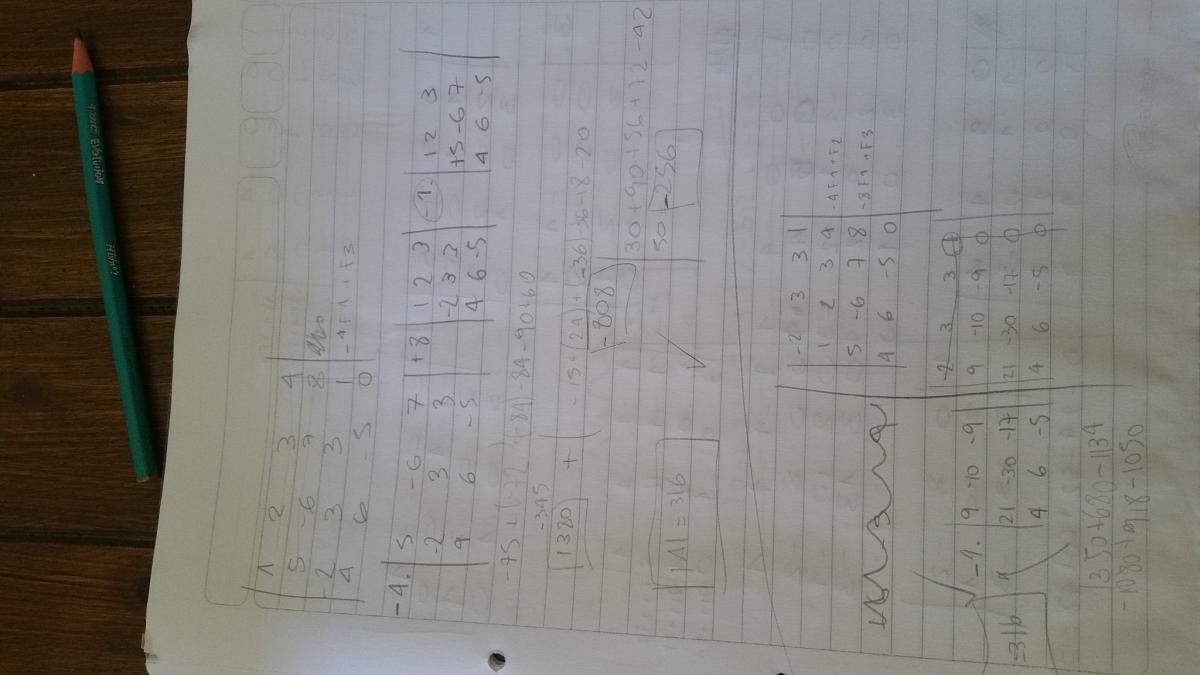 1 2 3 4
5 -6 7 8
-2 3 3 1 -4F1+F3
4 6 -5 0
-4. | 5 -6 7 | +8 | 1 2 3 | -1. | 1 2 3 |
| -2 3 3 | | -2 3 3 | | +5 -6 7 |
| 4 6 -5 | | 4 6 -5 |
-84 -90+60
-345
1380 + ( -15+(24)+(-36)-36-18-20
-808 30+90+56+72-42
50 -256
|A| = 316
-2 3 3 1
1 2 3 4 -4F1+F2
5 -6 7 8 -8F1+F3
4 6 -5 0
-2 3 3 1
-1. | 9 -10 -9 | 9 -10 -9 0
| 21 -30 -17 | 21 -30 -17 0
| 4 6 -5 | 4 6 -5 0
-316
1350+680-1134
-1080+918-1050